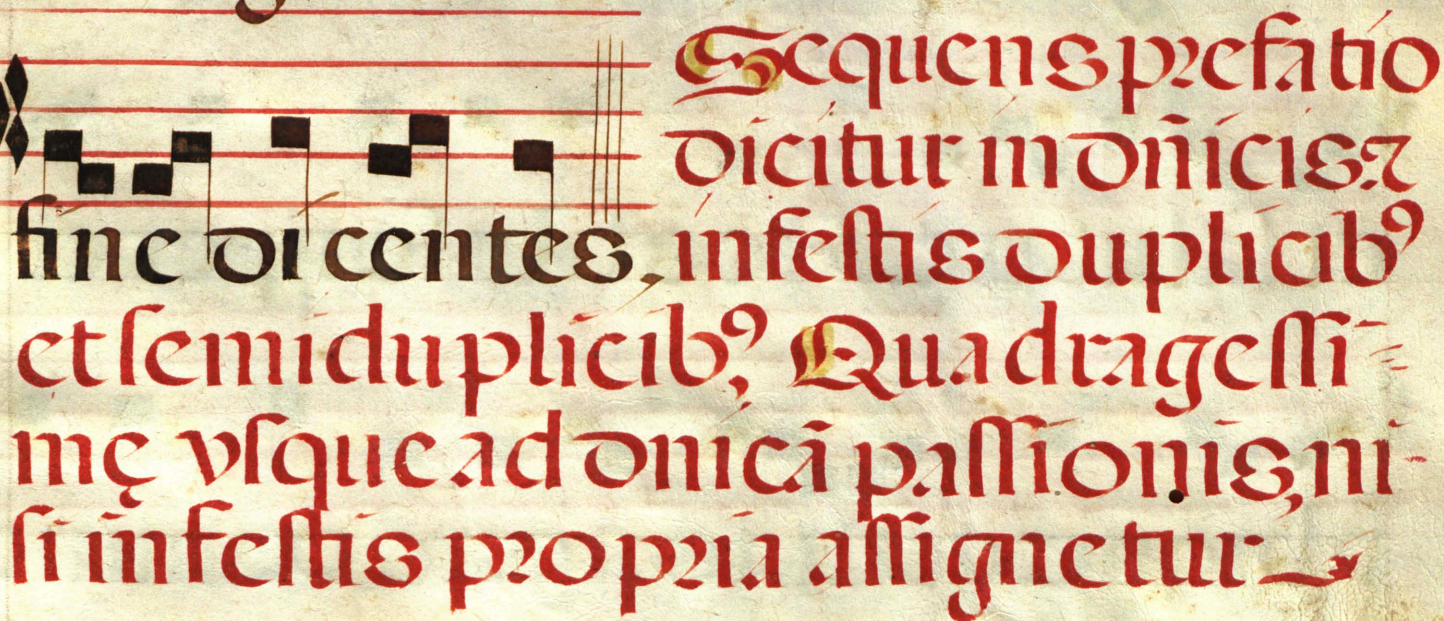 fine dicentes,
Sequens prefatio
dicitur in dñicis ⁊
in festis duplicibꝰ
et semiduplicibꝰ, Quadragessi-
mę vsque ad dnicā passionis, ni-
si in festis propria assignetur